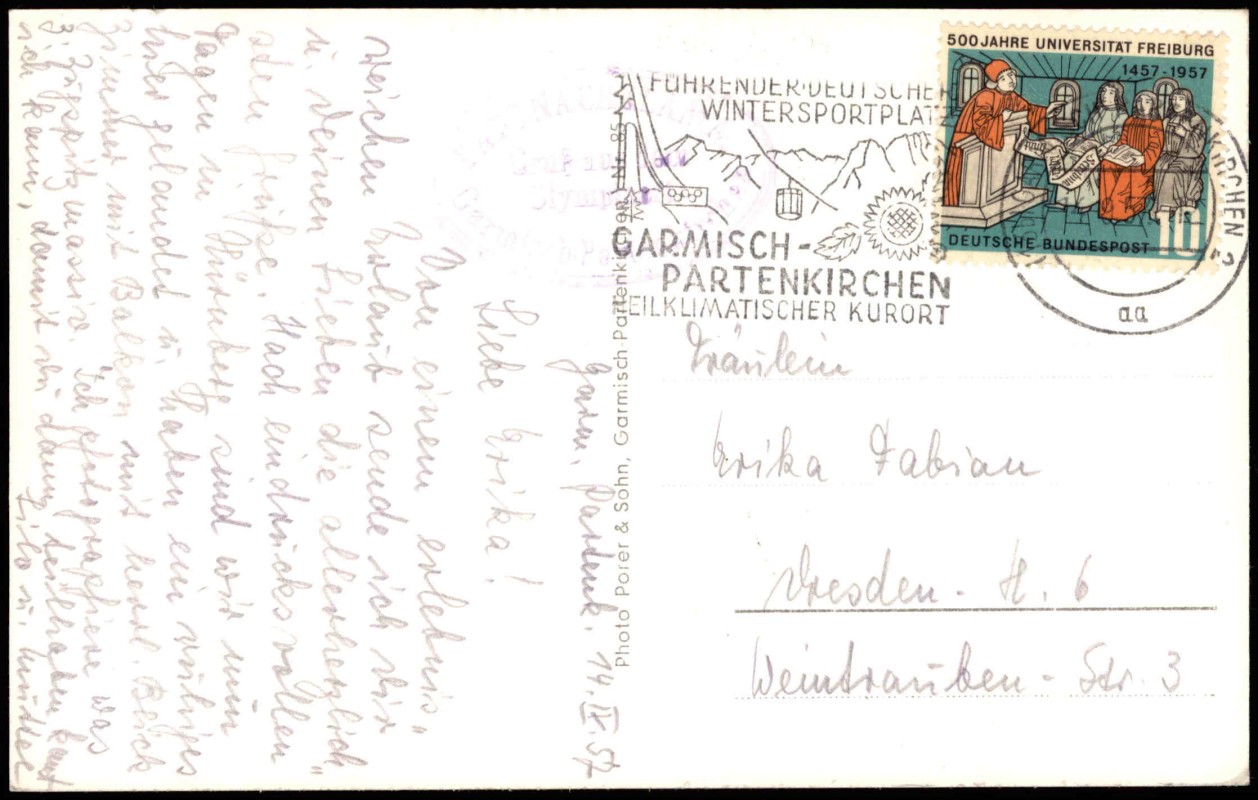 500 JAHRE UNIVERSITÄT FREIBURG
1457-1957
DEUTSCHE BUNDESPOST
10
FÜHRENDER·DEUTSCHER
WINTERSPORTPLATZ
GARMISCH-
PARTENKIRCHEN
HEILKLIMATISCHER KURORT
KIRCHEN 2
aa
Gruß aus dem
Olymp
Photo Porer & Sohn, Garmisch-Partenkirchen Nr. 85
Garm. Partenk. 14.IX.57
Liebe Erika!
Von einem erlebnis„
reichen Urlaub sende ich dir
u. deinen Lieben die allerherzlich
sten Grüße. Nach eindrucksvollen
Tagen in Nürnberg sind wir nun
hier gelandet u. haben ein ruhiges
Zimmer mit Balkon mit herrl. Blick
z. Zugspitzmassiv. Ich fotographiere was
ich kann, damit du dann teilhaben kannst
Lilo u. Mutter
Fräulein
Erika Fabian
Dresden - N. 6
Weintrauben - Str. 3